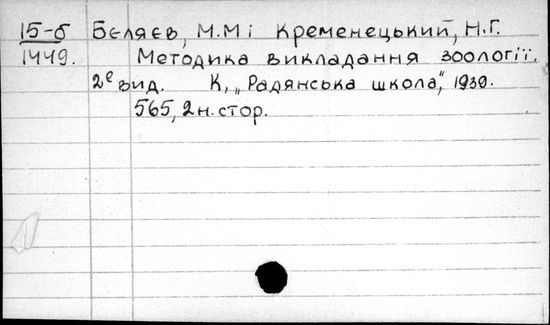 15-б Бєляєв, М.М і Кременецький, Н.Г.
1449. Методика викладання зоології.
2е вид. К, „Радянська школа", 1939.
565, 2 н. стор.